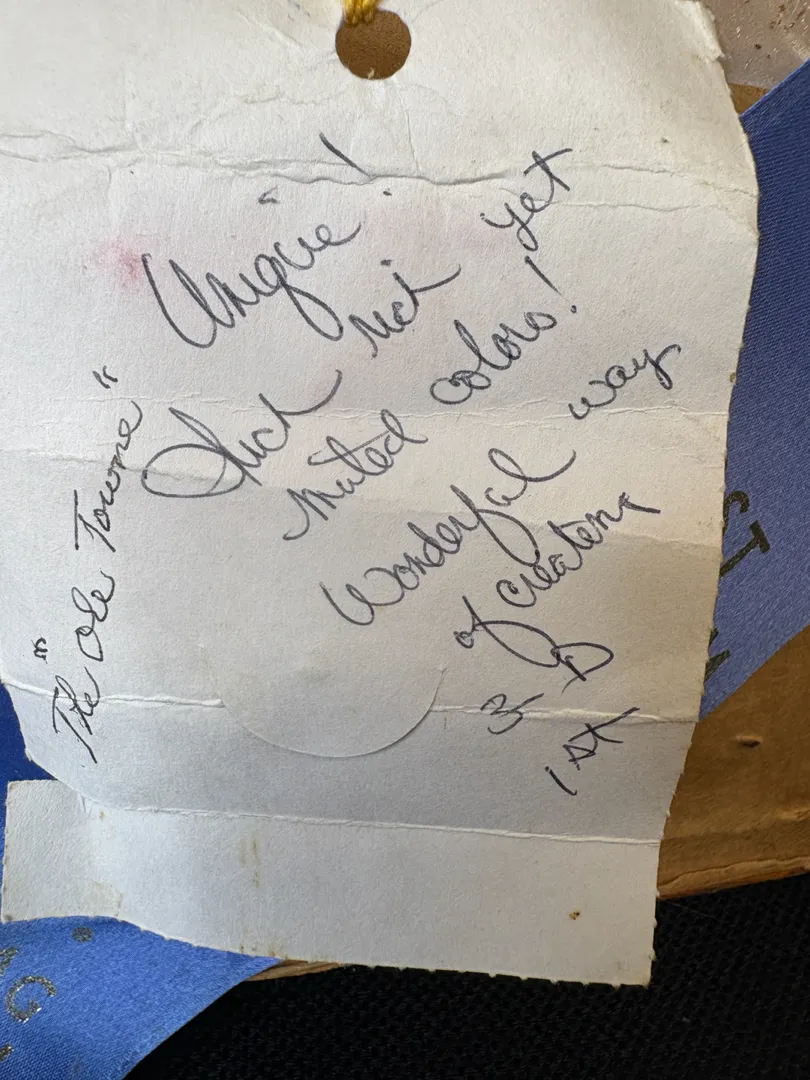 "The Ole Towne"
Unique!
Such rich yet
muted colors!
Wonderful way
of creating
3-D
1st
ST
AG